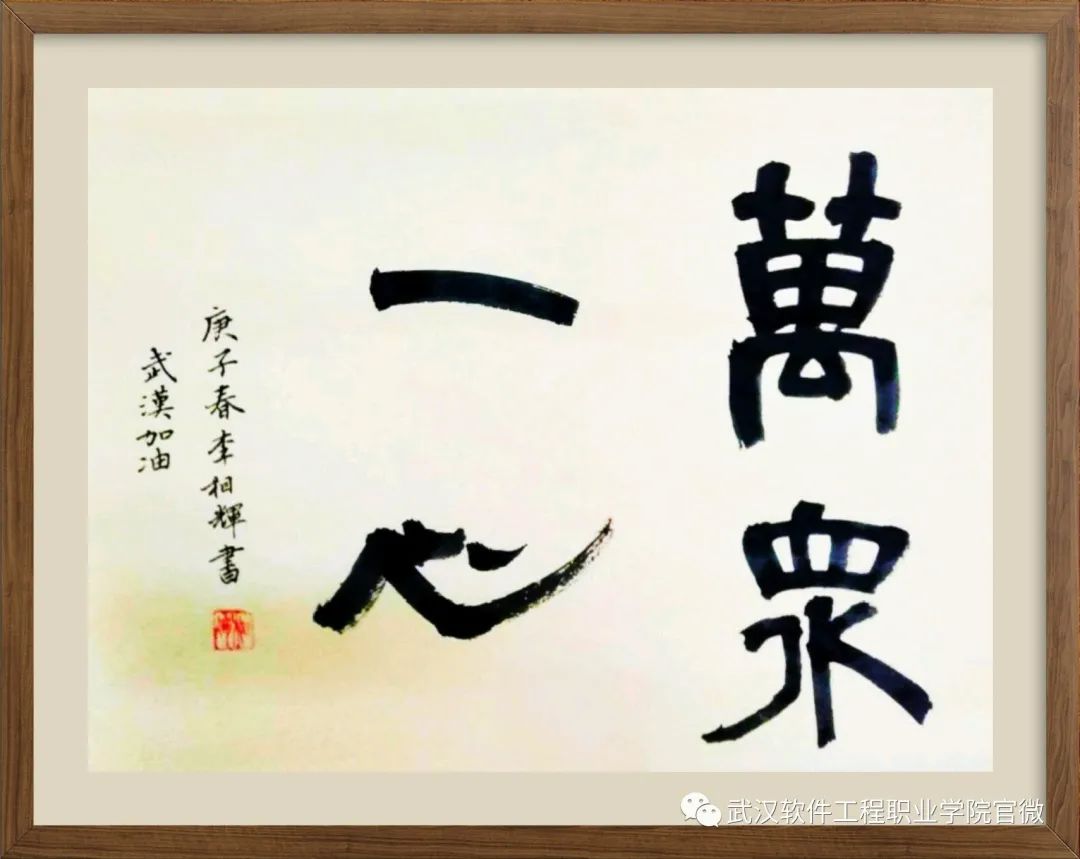 萬眾
一心
庚子春李相輝書
武漢加油
武汉软件工程职业学院官微